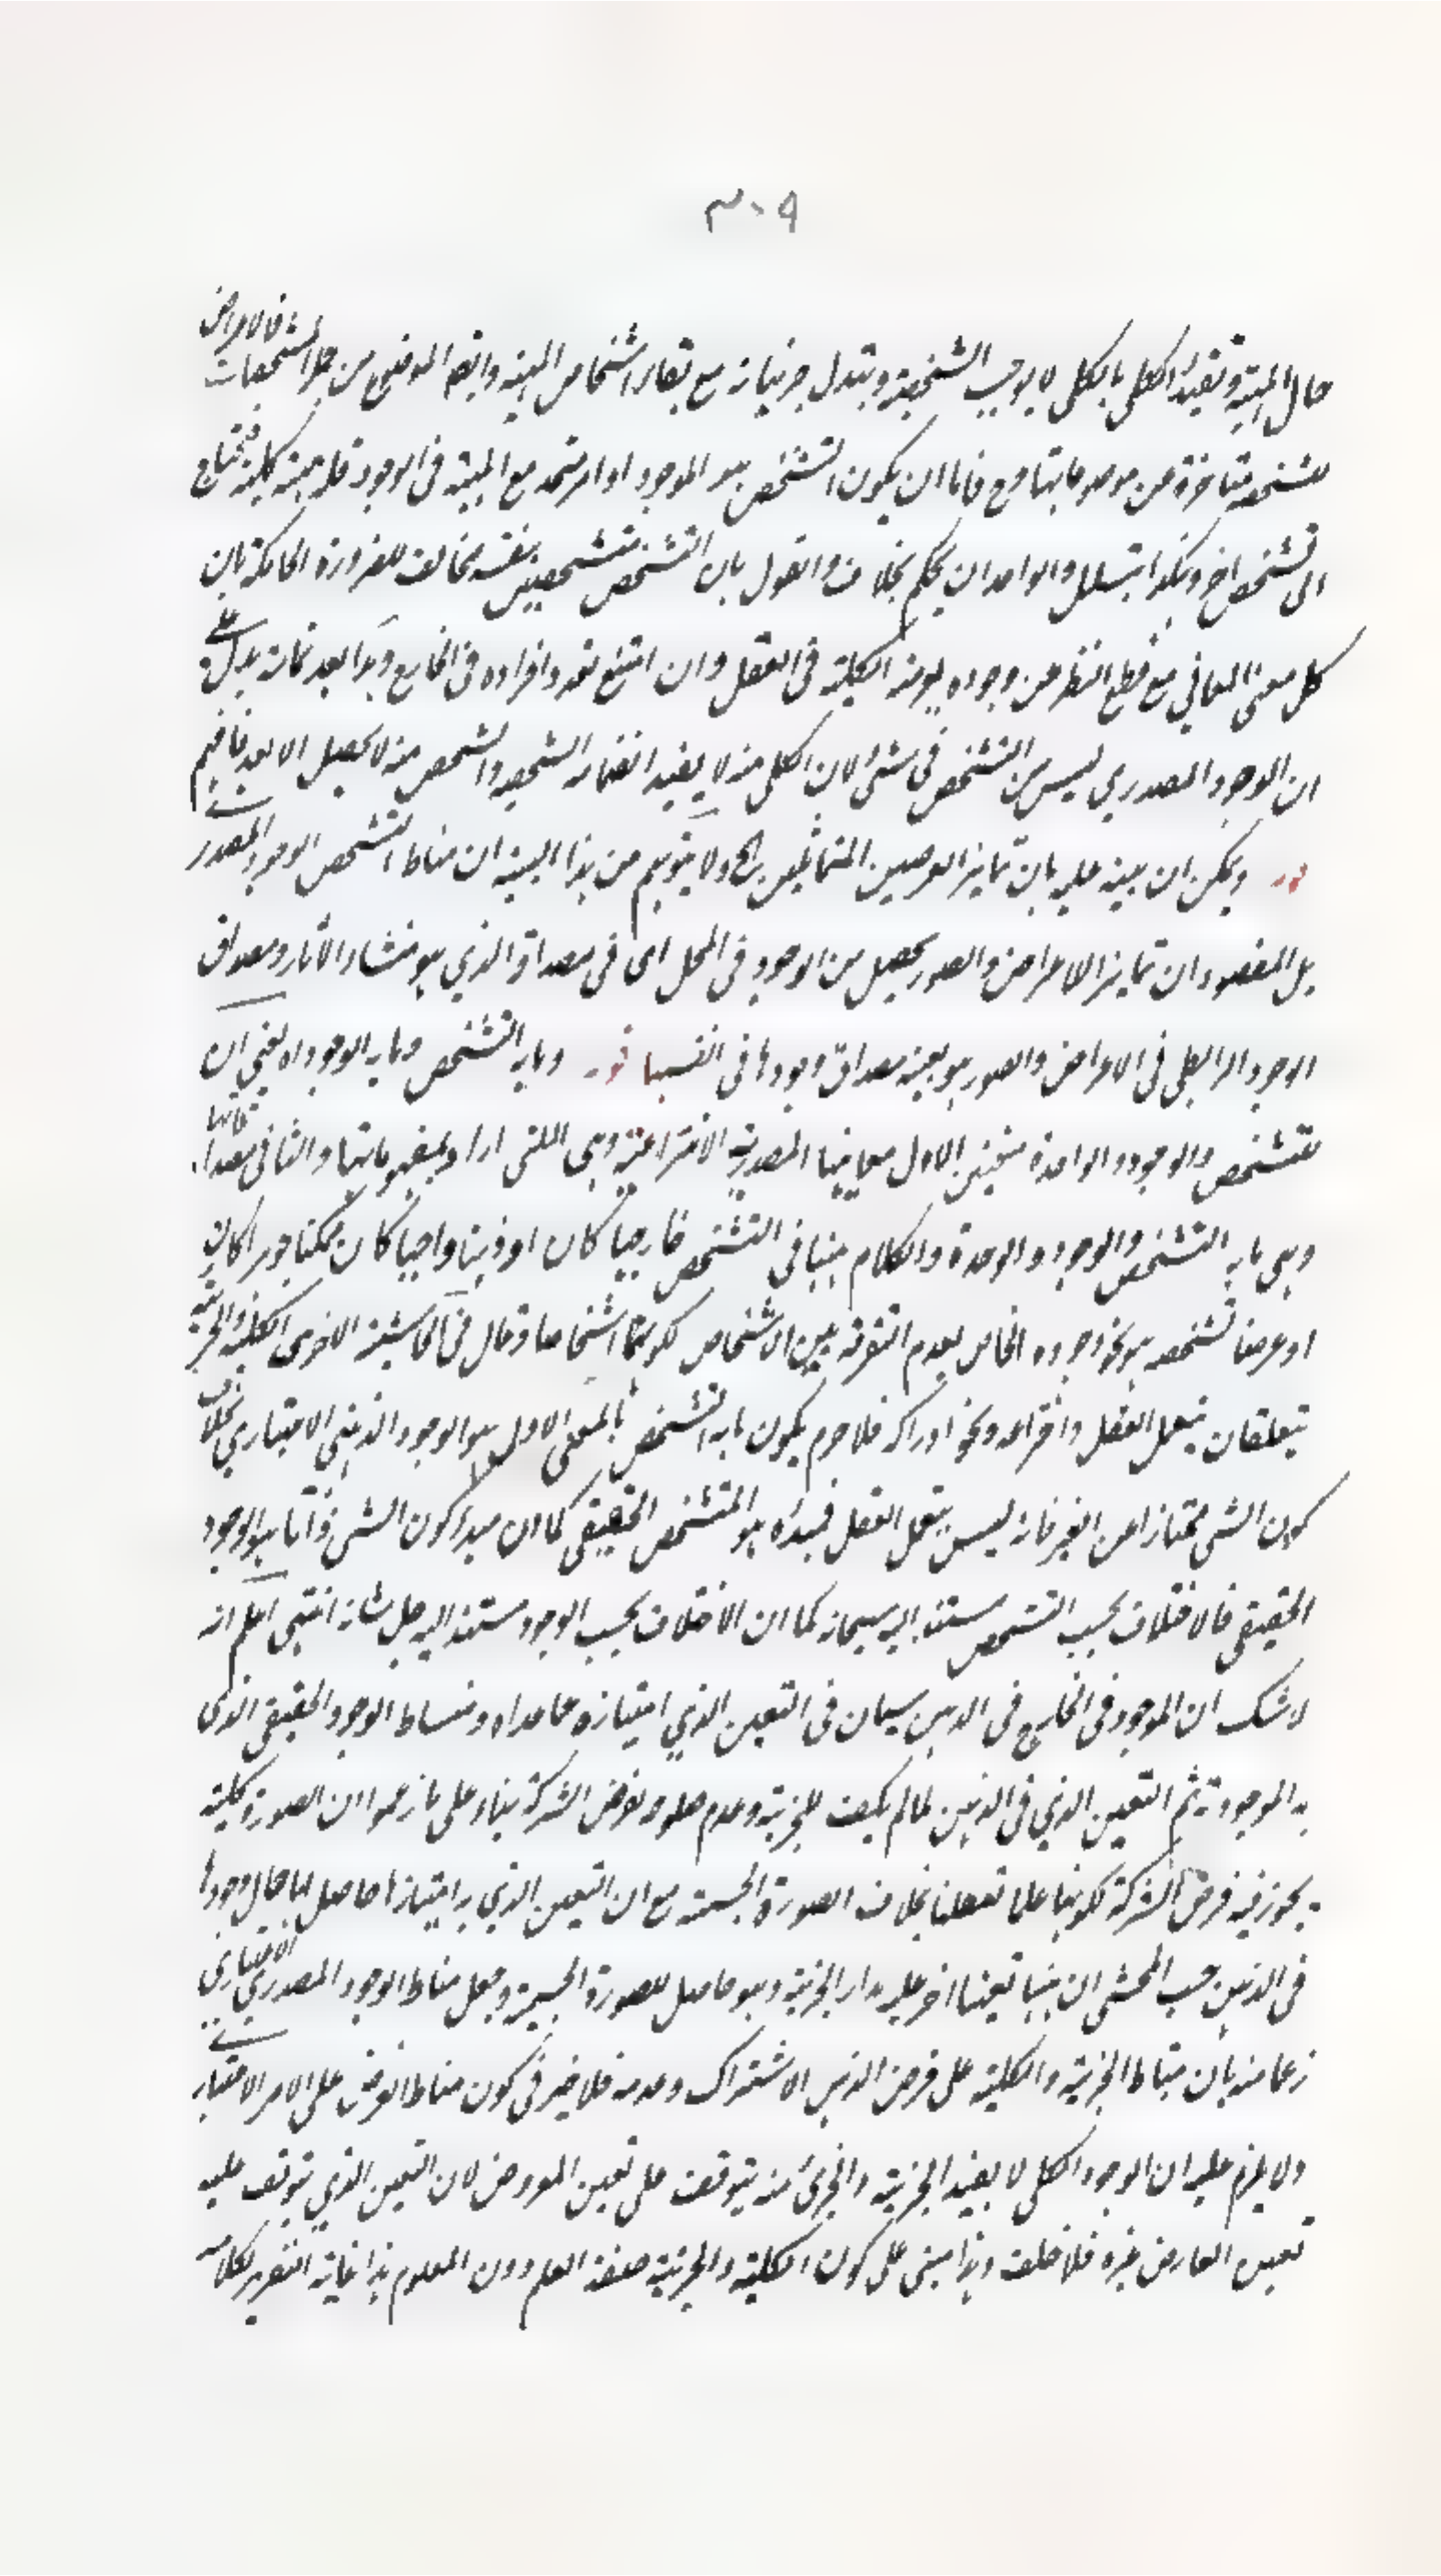 ٣٠٩
حال المهية وتقييد الكلي بالكلي لا يوجب الشخصية وبتبدل جزئياته مع بقاء اشخاص المهية وايضا الوضع من جملة المشخصات فالاعراض
متشخصة متاخرة عن موضوعاتها وح فاما ان يكون التشخص هو الموجود او امر متحد مع المهية في الوجود فله مهية كلية فيحتاج
الى تشخص اخر وهكذا يتسلسل والواحد ان يحكم بخلاف والقول بان التشخص متشخص بنفسه مخالف للضرورة الحاكمة بان
كل معنى من المعاني مع قطع النظر عن وجوده يعرضه الكلية في العقل وان امتنع تعدد افراده في الخارج وهذا بعد تمامه يدل على
ان الوجود المصدري ليس من التشخص في شئ لان الكلي منه لا يفيد انضمامه الشخصية والشخص منه لا يحصل الا بعد فافهم
قوله ويمكن ان ينبه عليه بان تمايز العرضين المتماثلين الخ ولا يتوهم من هذا التنبيه ان مناط التشخص الوجود المصدري
بل المقصود ان تمايز الاعراض والصور يحصل من الوجود في المحل اى في مصداق الذي هو منشاء الاثار ومصداق
الوجود الرابطي في الاعراض والصور هو بعينه مصداق وجودها في انفسها قوله وما به التشخص وما به الوجود اه يعني ان
للتشخص والوجود والوحدة معنيين الاول معانيها المصدرية الانتزاعية وهي اللتي اراد بمفهوماتها والثاني مصداقاتها
وهي ما به التشخص والوجود والوحدة والكلام ههنا في التشخص خارجيا كان او ذهنيا واجبا كان ممكنا جوهرا كان
او عرضا تشخصه هو نحو وجوده الخاص لعدم التفرقة بين الاشخاص لكونها اشخاصا وقال في الحاشية الاخرى الكلية والجزئية
تتعلقان بتعمل العقل واختراعه ونحو ادراكه فلا جرم يكون ما به التشخص بالمعنى الاول هو الوجود الذهني الاعتباري بخلاف
كون الشئ ممتازا عن الغير فانه ليس بتعمل العقل فمبدأه هو المتشخص الحقيقي كما ان مبدأ كون الشئ ذا آثار هو الوجود
الحقيقي فالاختلاف بحسب التشخص مستند اليه سبحانه كما ان الاختلاف بحسب الوجود مستند اليه جل شانه انتهى اعلم انه
لا شك ان الموجود في الخارج في الذهن سيان في التعين الذي امتيازه عما عداه ومناط الوجود الحقيقي الذي
به الموجودية ثم التعين الذي في الذهن لما لم يكف للجزئية وعدم صلوح فرض الشركة بناء على ما زعموا ان الصورة كلية
يجوز فيه فرض الشركة لكونها علما تعقليا بخلاف الصورة الحسية مع ان التعين الذي به امتيازها حاصل لها حال وجودها
في الذهن حسب المحشي ان ههنا تعينا اخر عليه مدار الجزئية وهو حاصل للصورة الحسية وجعل مناط الوجود المصدري الاعتباري
زعما منه بان مناط الجزئية والكلية على فرض الذهن الاشتراك وعدمه فلا ضير في كون مناط الفرض على الامر الاعتباري
ولا يلزم عليه ان الوجود الكلي لا يفيد الجزئية والجزئ منه يتوقف على تعين المعروض لان التعين الذي يتوقف عليه
تعين العارض غيره فلا خلف وهذا مبنى على كون الكلية والجزئية صفة العلم دون المعلوم هذا غاية التقرير لكلامه